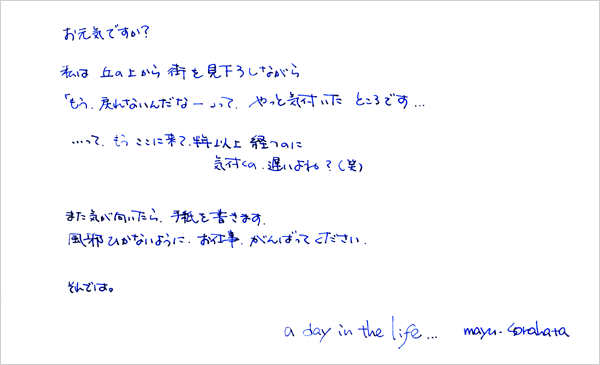 お元気ですか?
私は 丘の上から 街を見下ろしながら
「もう、戻れないんだなー」って、やっと気付いた ところです...
...って、もう ここに来て、半年以上 経つのに
気付くの、遅いよね?(笑)
また気が向いたら、手紙を書きます。
風邪ひかないように、お仕事、がんばってください。
それでは。
a day in the life... mayu.